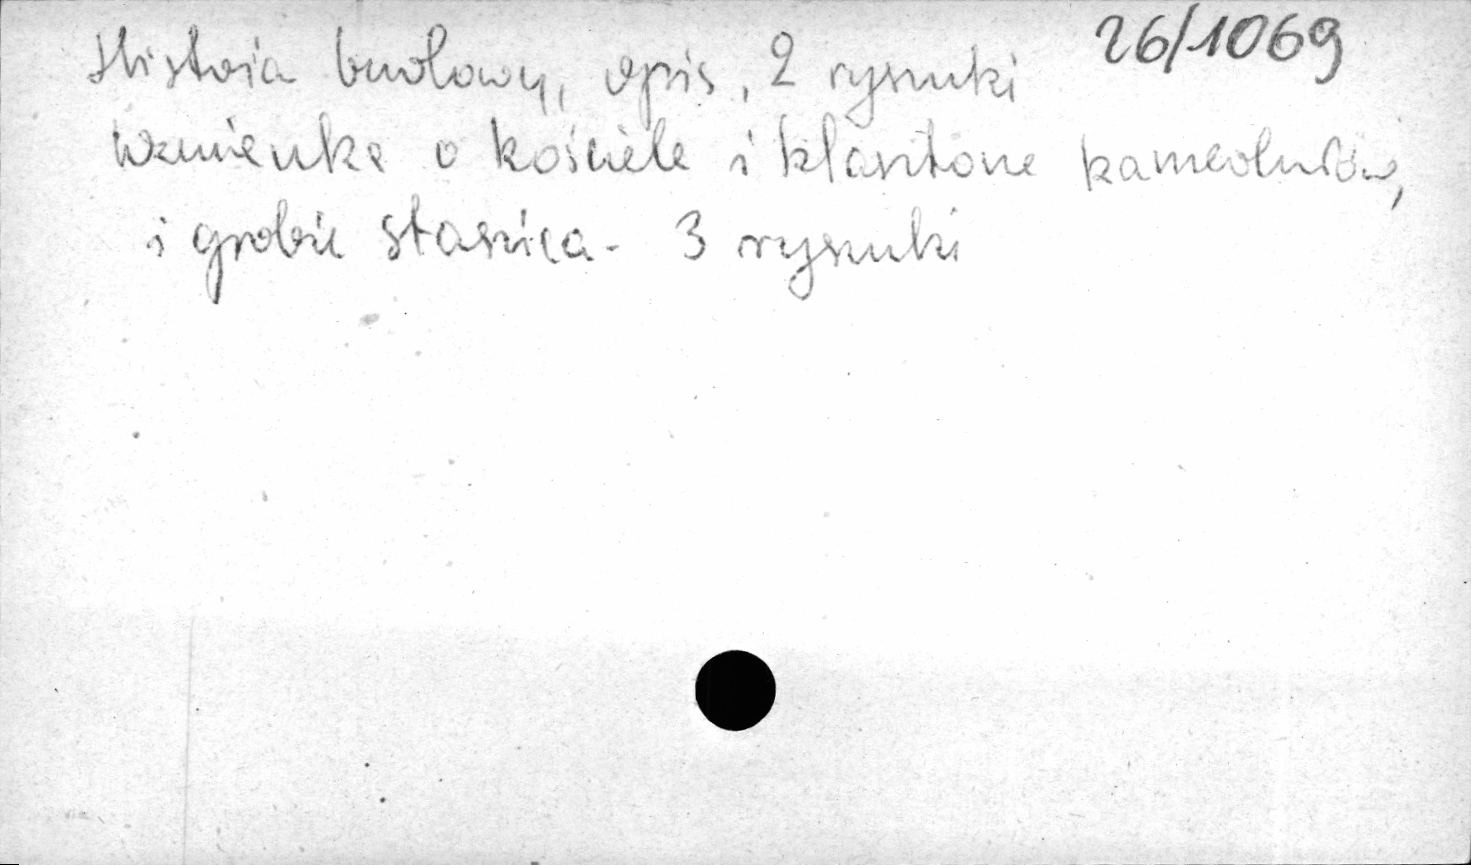 26/1069
Historia budowy, opis, 2 rysunki
Wzmianka o kościele i klasztorze kamedułów,
i grobie Staszica - 3 rysunki